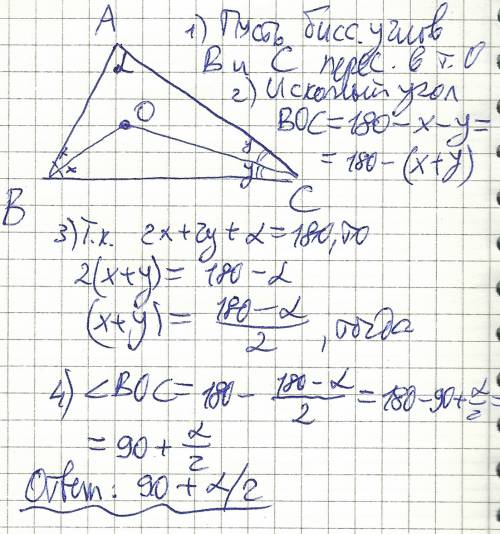 A
1) Пусть бисс. углов
B и C перес. в т. O
2) Искомый угол
BOC = 180 - x - y =
= 180 - (x + y)
α
O
x
x
y
y
B
C
3) Т.к. 2x + 2y + α = 180, то
2(x + y) = 180 - α
(x + y) = \frac{180 - α}{2}, тогда
4) ∠BOC = 180 - \frac{180 - α}{2} = 180 - 90 + \frac{α}{2} =
= 90 + \frac{α}{2}
Ответ: 90 + α/2